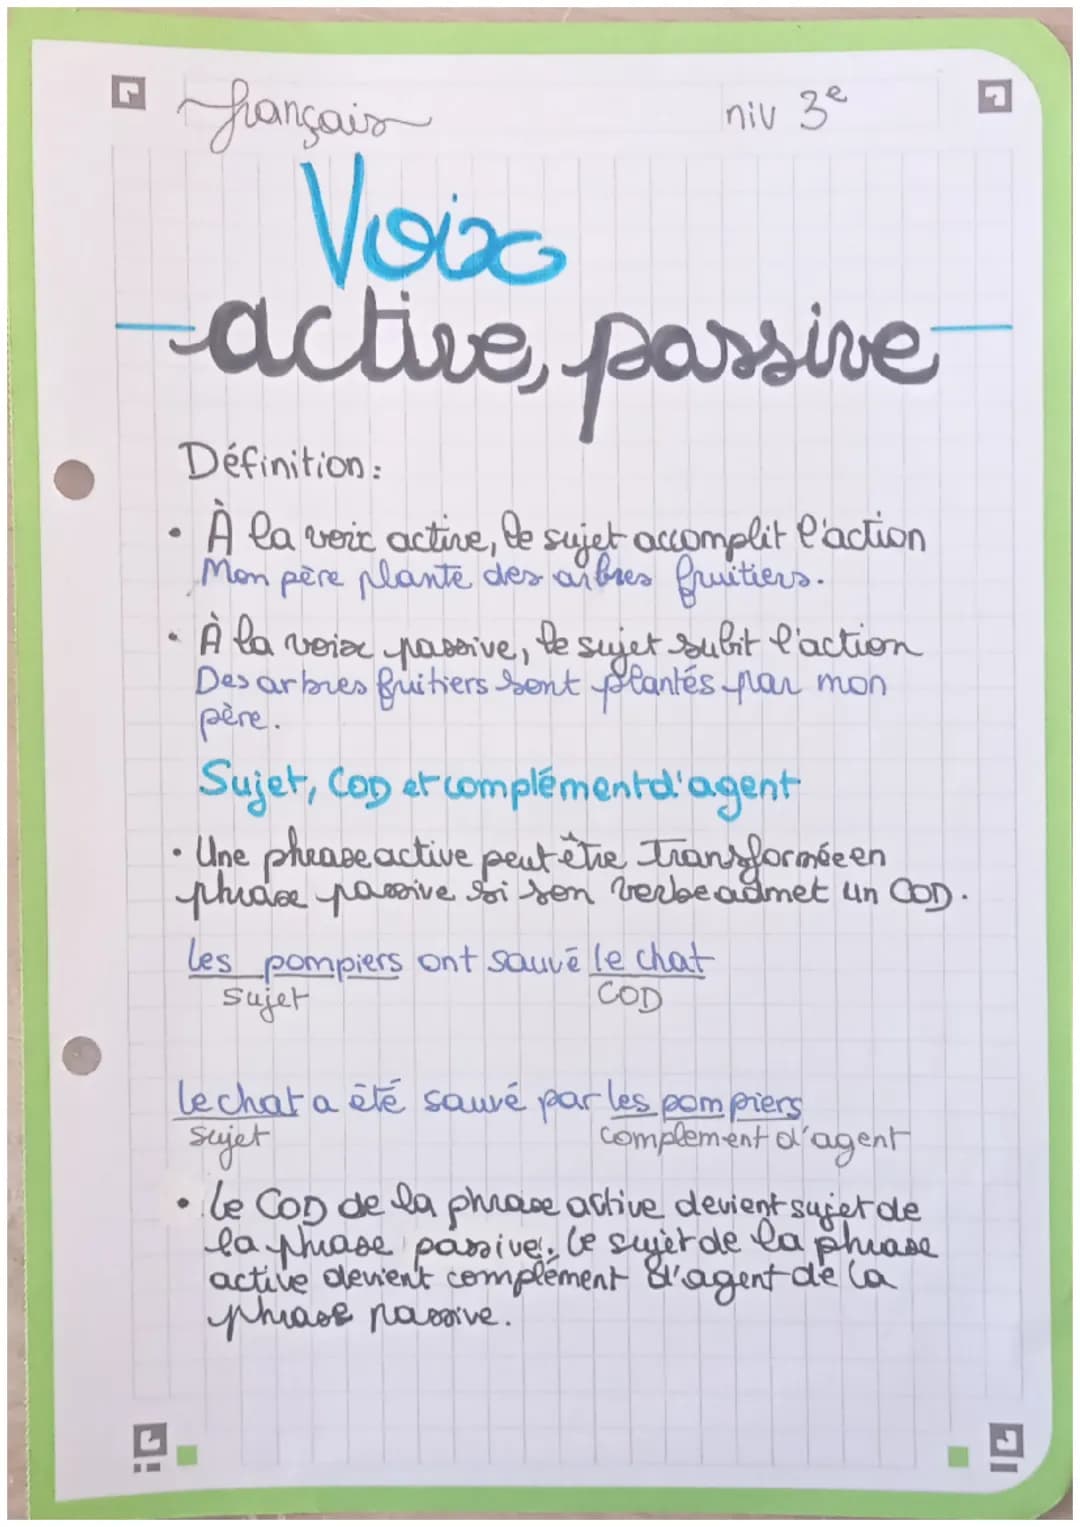 français
niv 3e
Voix
active, passive
Définition :
• À la voix active, le sujet accomplit l'action
Mon père plante des arbres fruitiers.
• À la voix passive, le sujet subit l'action
Des arbres fruitiers sont plantés par mon
père.
Sujet, COD et complément d'agent
• Une phrase active peut être transformée en
phrase passive si son verbe admet un COD.
les pompiers ont sauvé le chat
sujet COD
le chat a été sauvé par les pompiers
sujet complement d'agent
• le COD de la phrase active devient sujet de
la phrase passive. le sujet de la phrase
active devient complément d'agent de la
phrase passive.